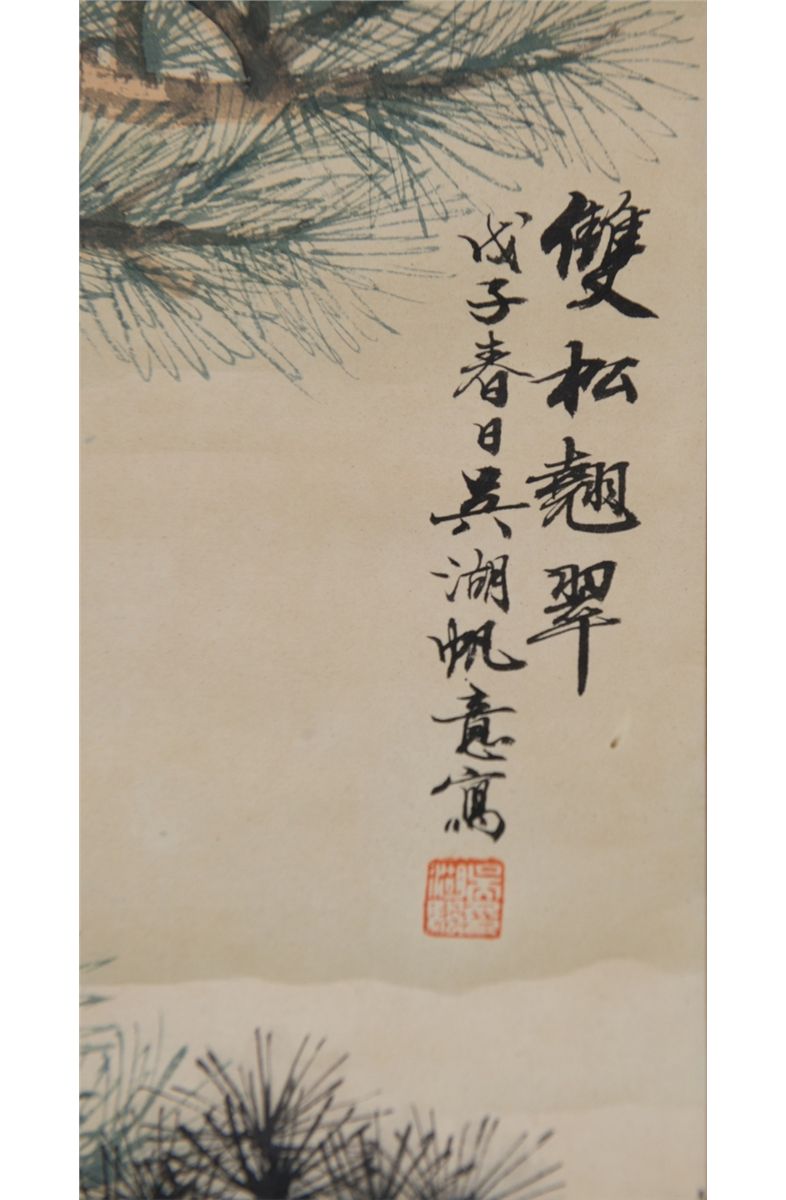 雙松翹翠
戊子春日吳湖帆意寫